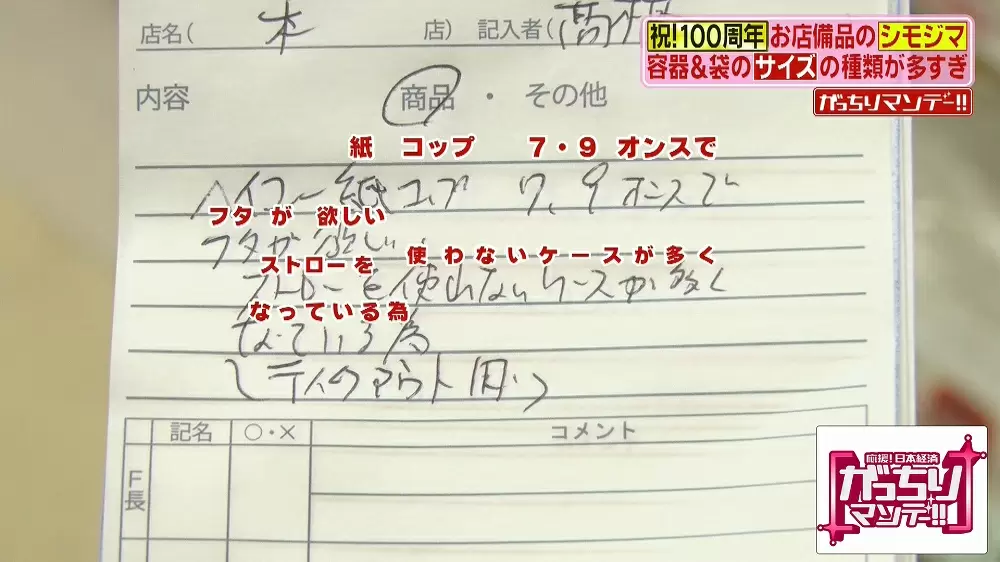 店名( 本 店) 記入者(高橋
祝!100周年 お店備品のシモジマ
容器&袋のサイズの種類が多すぎ
がっちりマンデー!!
内容 商品・その他
紙 コップ 7・9 オンスで
紙コップ 7、9オンスで
フタ が 欲しい
フタが欲しい
ストローを 使わないケースが多く
ストローを使わないケースが多く
なっている為
なっている為
(テイクアウト用)
記名 ○・× コメント
F長
応援!日本経済
がっちり
マンデー!!